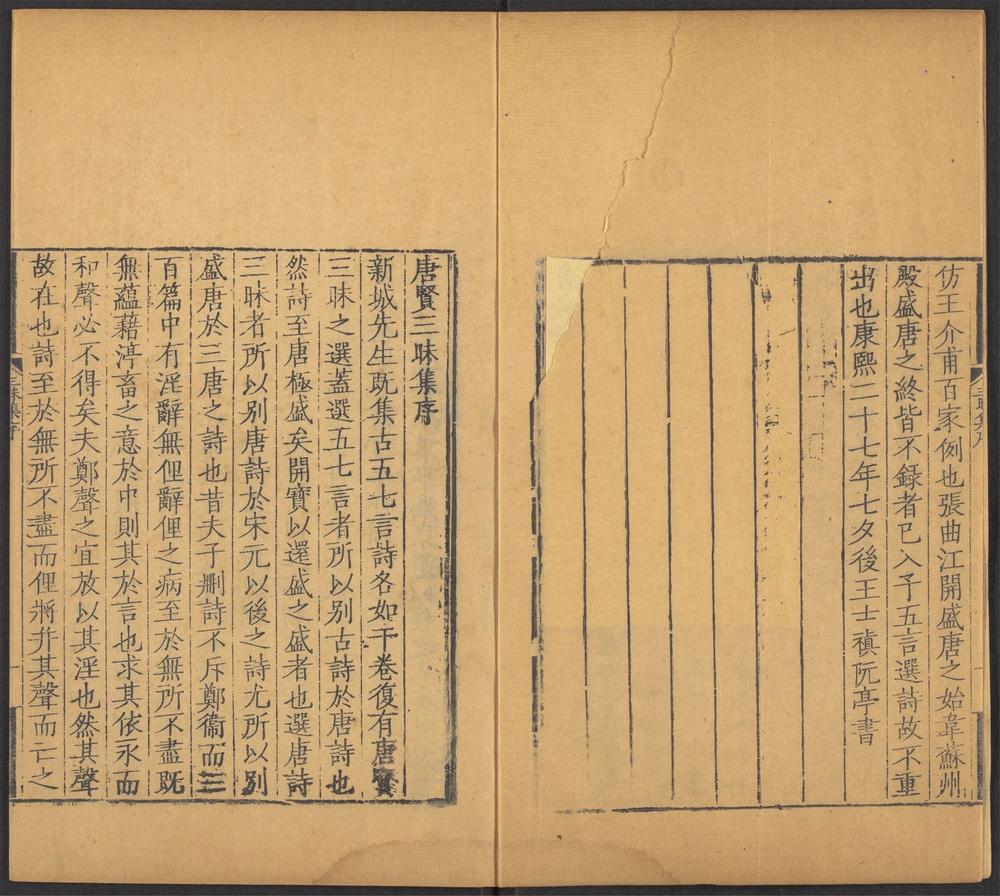 仿王介甫百家例也張曲江開盛唐之始韋蘇州
殿盛唐之終皆不錄者已入予五言選詩故不重
出也康熙二十七年七夕後王士禛阮亭書
唐賢三昧集序
新城先生既集古五七言詩各如干卷復有唐賢
三昧之選蓋選五七言者所以別古詩於唐詩也
然詩至唐極盛矣開寶以還盛之盛者也選唐詩
三昧者所以別唐詩於宋元以後之詩尤所以別
盛唐於三唐之詩也昔夫子刪詩不斥鄭衞而三
百篇中有淫辭無俚辭俚之病至於無所不盡既
無蘊藉渟畜之意於中則其於言也求其依永而
和聲必不得矣夫鄭聲之宜放以其淫也然其聲
故在也詩至於無所不盡而俚將并其聲而亡之
三昧集序